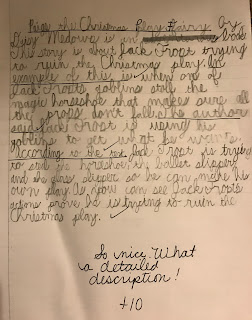 Paige the Christmas Play Fairy by
Daisy Meadows is an book
This story is about Jack Frost trying
to ruin the Christmas play. An
example of this is when one of
Jack Frosts goblins stole the
magic horseshoe that makes sure all
the props don't fall. The author
said Jack Frost is using his
goblins to get what he wants.
According to the text Jack Frost is trying
to steal the horshoe, the ballet slipper
and the glass slipper so he can make his
own play. As you can see Jack Frosts
actions prove he is trying to ruin the
Christmas play.
So nice. What
a detailed
description!
+10